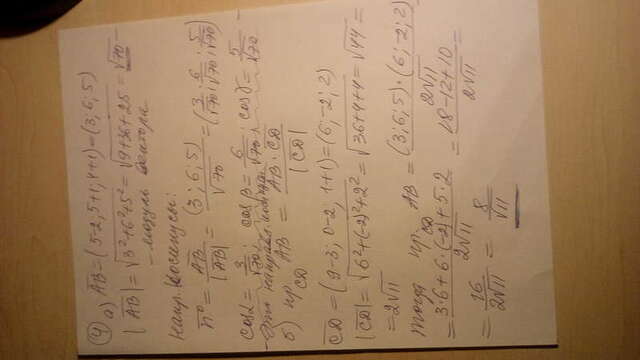 ④ а) AB = (5-2; 5+1; 4+1) = (3; 6; 5)
|AB| = √3²+6²+5² = √9+36+25 = √70 –
– модуль вектора.
Напр. Косинусы:
n⁰ = AB/|AB| = (3; 6; 5)/√70 = (3/√70; 6/√70; 5/√70)
cosα = 3/√70; cosβ = 6/√70; cosγ = 5/√70 –
Это направл. косинусы
б) пр. CD AB = AB · CD/|CD|
CD = (9-3; 0-2, 1+1) = (6; -2; 2)
|CD| = √6²+(-2)²+2² = √36+4+4 = √44 =
= 2√11
Тогда пр. CD AB = (3; 6; 5)·(6; -2; 2)/2√11
= 3·6+6·(-2)+5·2/2√11 = 18-12+10/2√11 =
= 16/2√11 = 8/√11